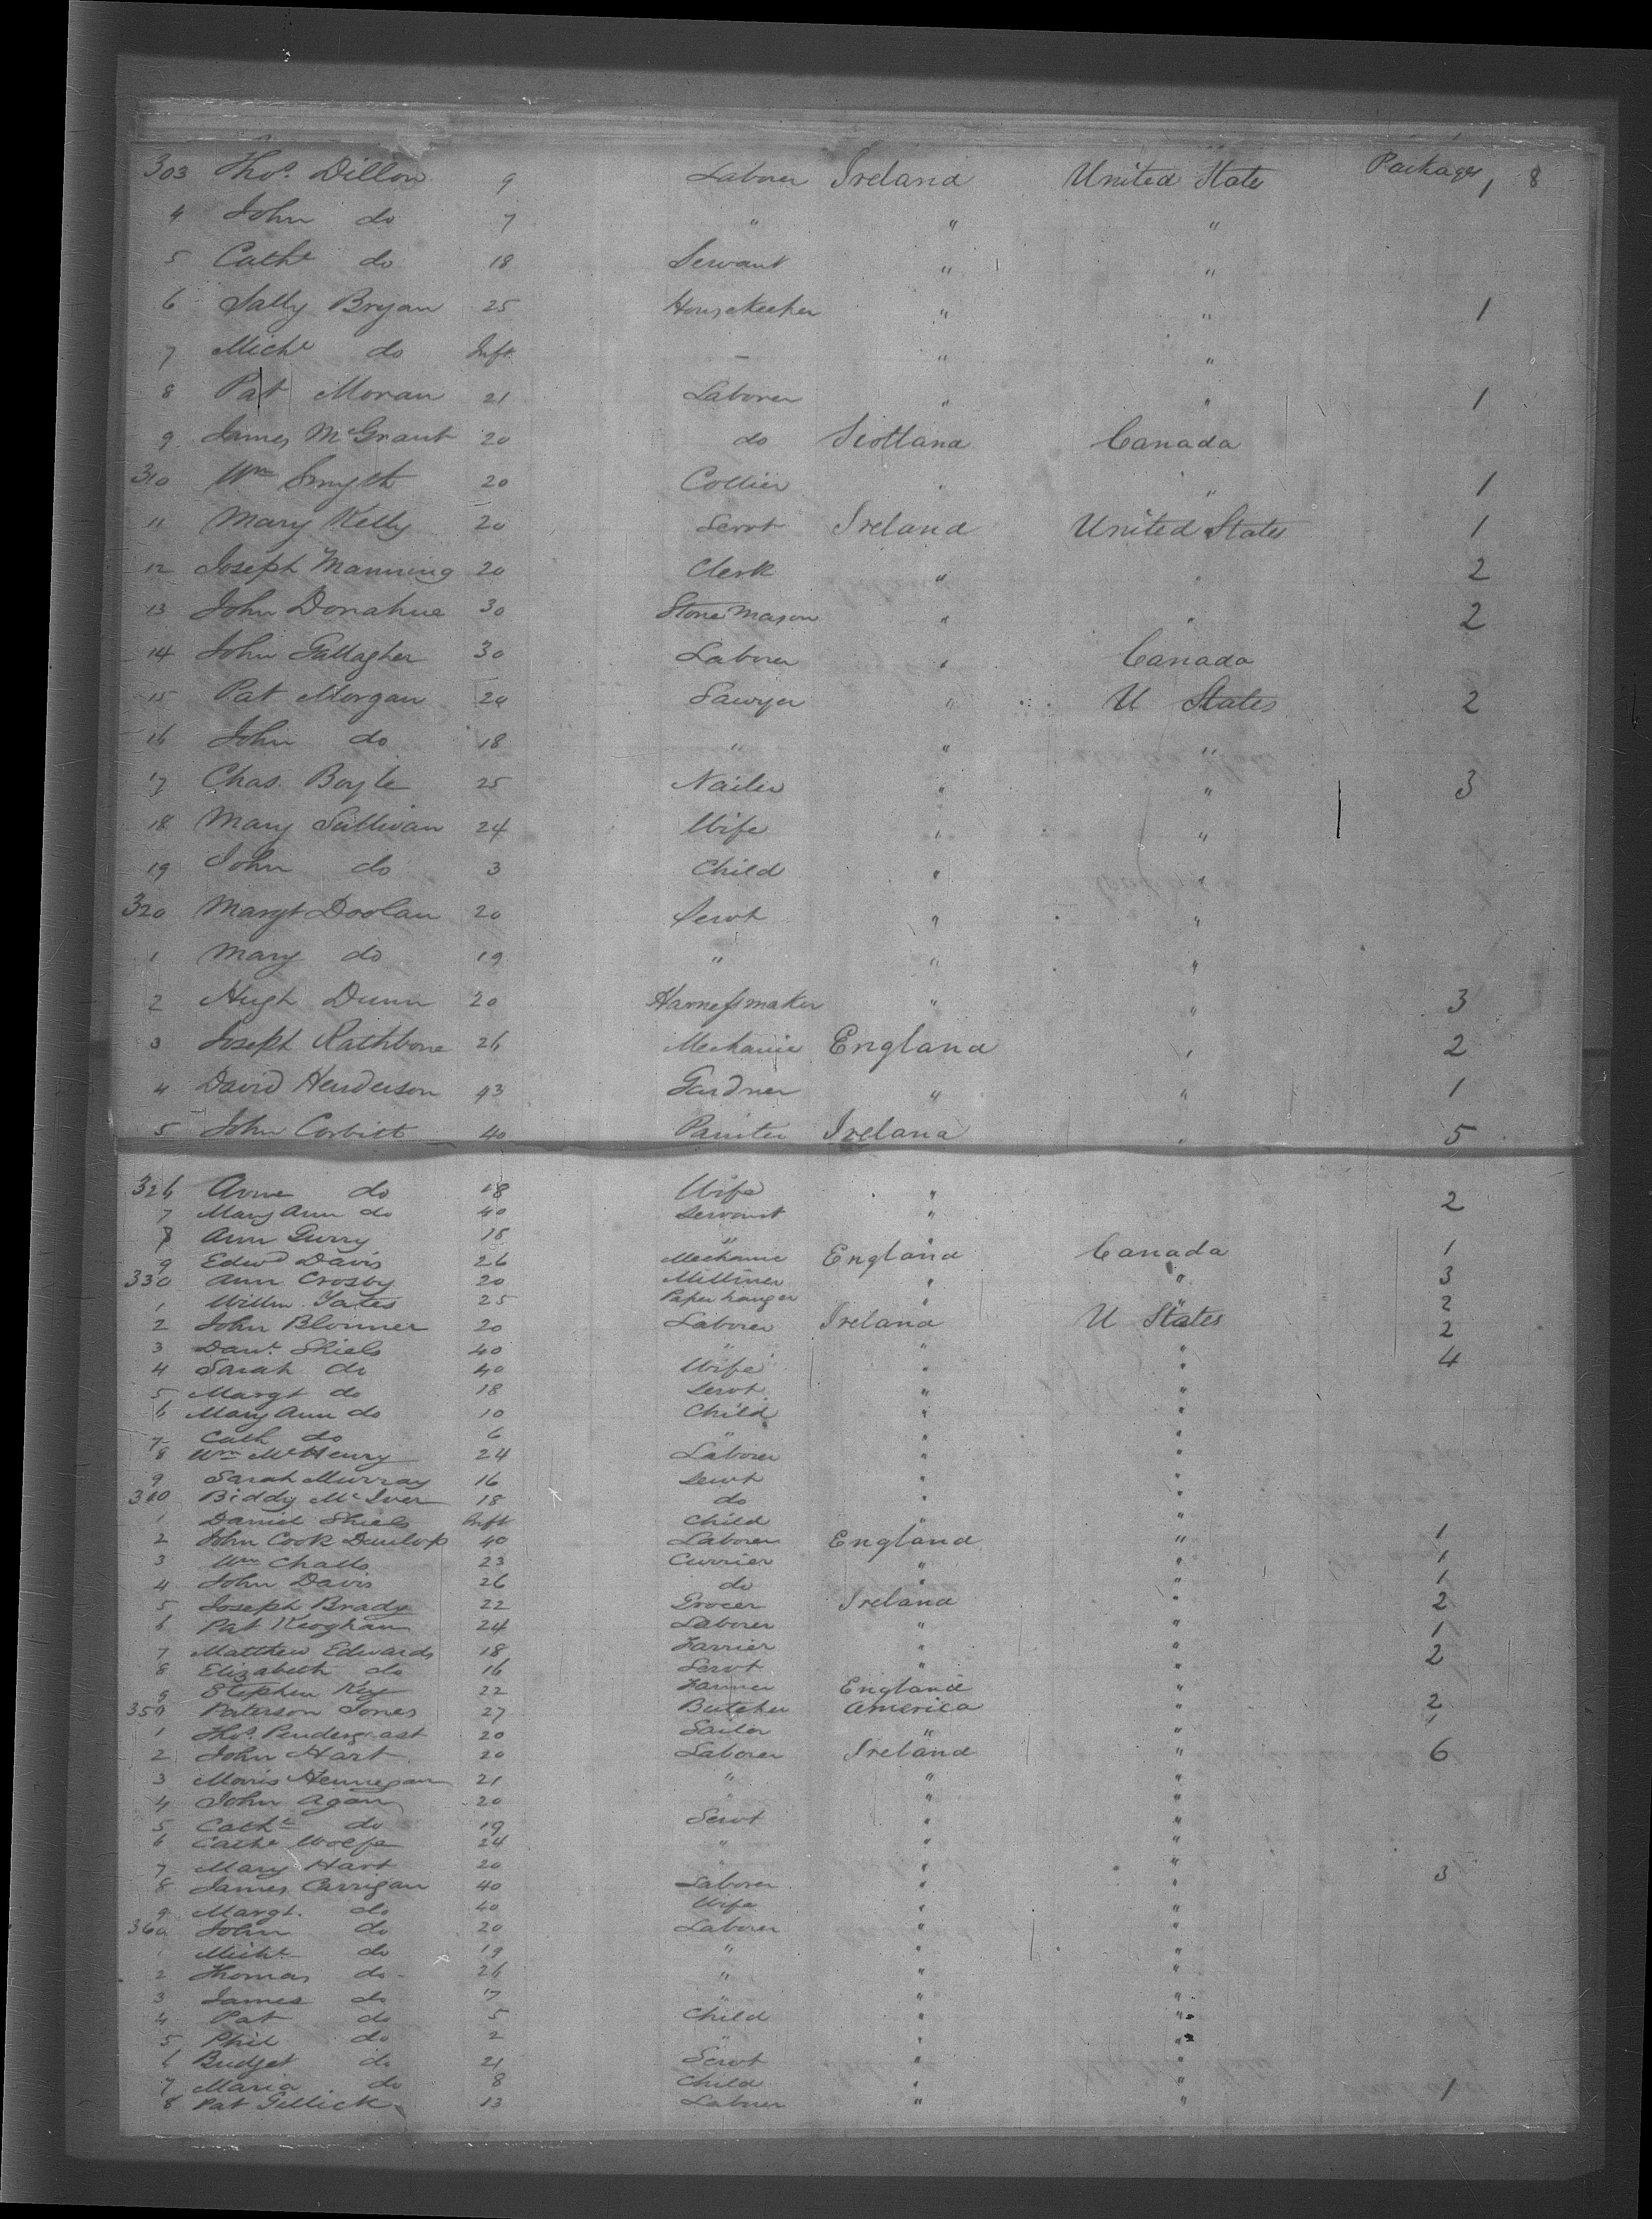 Packages 8
303 Thos. Dillon 9 Laborer Ireland United State 1
4 John do 7 " " "
5 Cathe do 18 Servant " "
6 Sally Bryan 25 Housekeeper " " 1
7 Michl do Inft - " "
8 Pat Moran 21 Laborer " " 1
9 James McGrant 20 do Scotland Canada
310 Wm Smyth 20 Collier " " 1
11 Mary Kelly 20 Servt Ireland United States 1
12 Joseph Manning 20 Clerk " " 2
13 John Donahue 30 Stone Mason " " 2
14 John Gallagher 30 Laborer " Canada
15 Pat Morgan 20 Sawyer " U States 2
16 John do 18 " " "
17 Chas. Boyle 25 Nailer " " 3
18 Mary Sullivan 24 Wife " "
19 John do 3 Child " "
320 Margt Doolan 20 Servt " "
1 Mary do 19 " " "
2 Hugh Dunn 20 Harnessmaker " " 3
3 Joseph Rathbone 26 Mechanic England " 2
4 David Henderson 43 Gardner " " 1
5 John Corbitt 40 Painter Ireland " 5
326 Anne do 18 Wife " 2
7 Mary Ann do 40 Servant "
8 Ann Gurry 18 " "
9 Edwd Davis 26 Mechanic England Canada 1
330 Ann Crosby 20 Milliner " " 3
1 Willm Yates 25 Paper hanger " " 2
2 John Blonner 20 Laborer Ireland U States 2
3 Danl Shiels 40 " " " 4
4 Sarah do 40 Wife " "
5 Margt do 18 Servt " "
6 Mary Ann do 10 Child " "
7 Cath do 6 " " "
8 Wm McHenry 24 Laborer " "
9 Sarah Murray 16 Servt " "
340 Biddy McIver 18 do " "
1 Daniel Shiels Inft Child " "
2 John Cook Dunlop 40 Laborer England " 1
3 Wm Challs 23 Currier " " 1
4 John Davis 26 do " " 1
5 Joseph Brady 22 Grocer Ireland " 2
6 Pat Keoghan 24 Laborer " " 1
7 Matthew Edwards 18 Farrier " " 2
8 Elizabeth do 16 Servt " "
9 Stephen Key 22 Farmer England "
350 Paterson Jones 27 Butcher America " 2
1 Thos. Pendergast 20 Sailor " " 1
2 John Hart 20 Laborer Ireland " 6
3 Morris Hennegan 21 " " "
4 John Agan 20 " " "
5 Cathe do 19 Servt " "
6 Cathe Wolfe 24 " " "
7 Mary Hart 20 " " "
8 James Carrigan 40 Laborer " " 3
9 Margt. do 40 Wife " "
360 John do 20 Laborer " "
1 Michl do 19 " " "
2 Thomas do 26 " " "
3 James do 7 " " "
4 Pat do 5 Child " "
5 Phil do 2 " " "
6 Budget do 21 Servt " "
7 Maria do 8 Child " "
8 Pat Gellick 13 Laborer " " 1